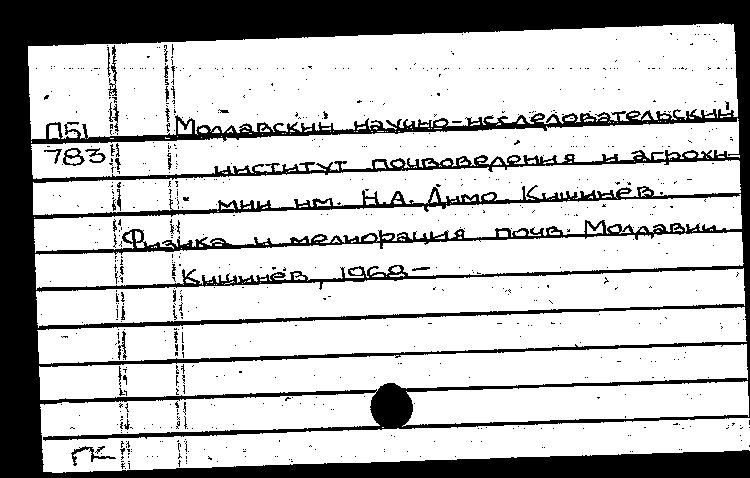 П51 Молдавский научно-исследовательский
783 институт почвоведения и агрохи-
мии им. Н.А. Димо. Кишинёв.
Физика и мелиорация почв. Молдавии.
Кишинёв, 1968-
ГК